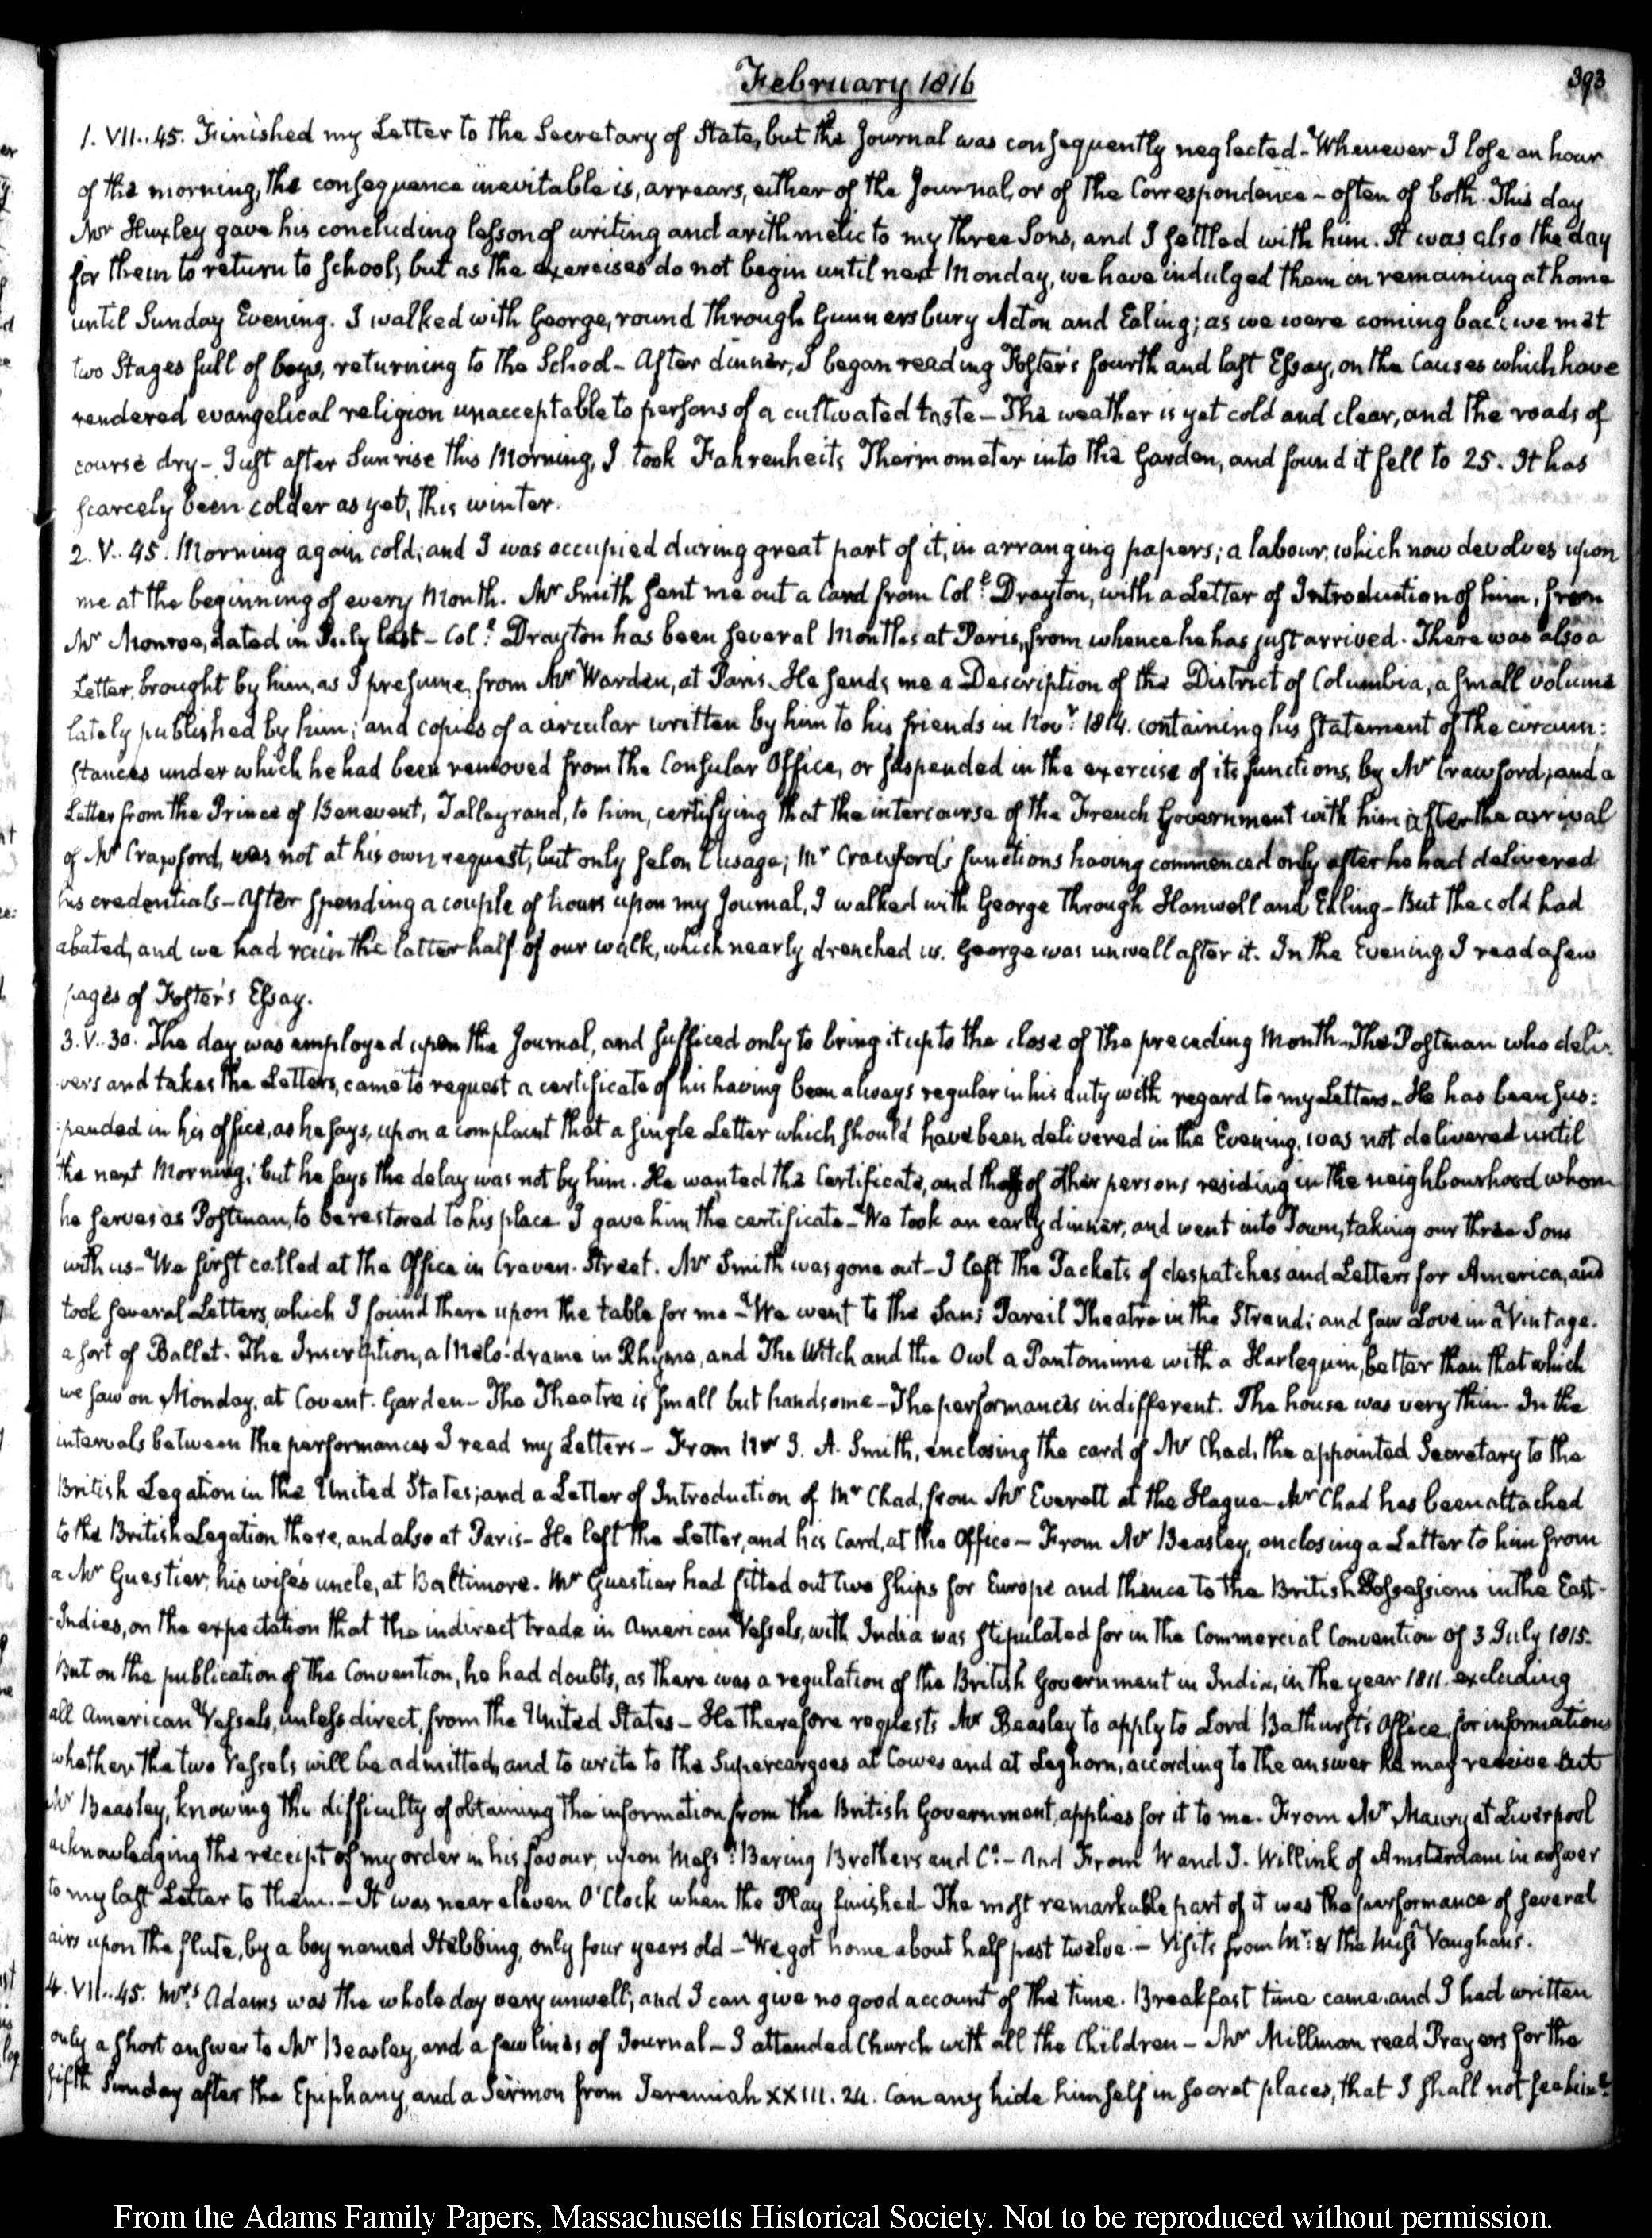 February 1816
393
1. VII..45. Finished my Letter to the Secretary of State, but the Journal was consequently neglected - Whenever I lose an hour
of the morning, the consequence inevitable is, arrears, either of the Journal, or of the Correspondence - often of both. This day
Mr Huxley gave his concluding lesson of writing and arithmetic to my three Sons, and I settled with him. It was also the day
for them to return to school; but as the exercises do not begin until next Monday, we have indulged them in remaining at home
until Sunday Evening. I walked with George, round through Gunnersbury Acton and Ealing; as we were coming back we met
two Stages full of boys, returning to the School - After dinner, I began reading Foster's fourth and last Essay, on the Causes which have
rendered evangelical religion unacceptable to persons of a cultivated taste - The weather is yet cold and clear, and the roads of
course dry - Just after Sunrise this Morning, I took Fahrenheits Thermometer into the Garden, and found it fell to 25. It has
scarcely been colder as yet, this winter.
2. V..45. Morning again cold; and I was occupied during great part of it, in arranging papers; a labour, which now devolves upon
me at the beginning of every Month. Mr Smith sent me out a Card from Coll. Drayton, with a Letter of Introduction of him, from
Mr Monroe, dated in July last - Coll. Drayton has been several Months at Paris, from whence he has just arrived. There was also a
Letter, brought by him, as I presume, from Mr Warden, at Paris. He sends me a Description of the District of Columbia, a small volume
lately published by him; and copies of a circular written by him to his friends in Novr. 1814. containing his statement of the circum:
stances under which he had been removed from the Consular Office, or suspended in the exercise of its functions, by Mr Crawford; and a
Letter from the Prince of Benevent, Talleyrand, to him, certifying that the intercourse of the French Government with him after the arrival
of Mr Crawford, was not at his own request, but only selon l'usage; Mr Crawford's functions having commenced only after he had delivered
his credentials - After spending a couple of hours upon my Journal, I walked with George through Hanwell and Ealing - But the cold had
abated, and we had rain the latter half of our walk, which nearly drenched us. George was unwell after it. In the Evening I read a few
pages of Foster's Essay.
3. V..30. The day was employed upon the Journal, and sufficed only to bring it up to the close of the preceding Month - The Postman who deli:
vers and takes the Letters, came to request a certificate of his having been always regular in his duty with regard to my Letters - He has been sus:
:pended in his office, as he says, upon a complaint that a single Letter which should have been delivered in the Evening, was not delivered until
the next Morning; but he says the delay was not by him. He wanted the Certificate, and those of other persons residing in the neighbourhood whom
he serves as Postman, to be restored to his place. I gave him the certificate - We took an early dinner, and went into Town, taking our three Sons
with us - We first called at the Office in Craven-Street. Mr Smith was gone out - I left the Packets of despatches and Letters for America, and
took several Letters, which I found there upon the table for me - We went to the Sans Pareil Theatre in the Strand; and saw Love in a Vintage.
a sort of Ballet. The Inscription, a Melo-drame in Rhyme, and The Witch and the Owl a Pantomime with a Harlequin, better than that which
we saw on Monday, at Covent-Garden - The Theatre is small but handsome - The performances indifferent. The house was very thin. In the
intervals between the performances I read my Letters - From Mr J. A. Smith, enclosing the card of Mr Chad, the appointed Secretary to the
British Legation in the United States; and a Letter of Introduction of Mr Chad, from Mr Everett at the Hague - Mr Chad has been attached
to the British Legation there, and also at Paris - He left the Letter, and his Card, at the Office - From Mr Beasley, enclosing a Letter to him from
a Mr Guestier, his wife's uncle, at Baltimore. Mr Guestier had fitted out two ships for Europe and thence to the British Possessions in the East-
-Indies, on the expectation that the indirect trade in American Vessels, with India was stipulated for in the Commercial Convention of 3 July 1815.
But on the publication of the Convention, he had doubts, as there was a regulation of the British Government in India, in the year 1811. excluding
all American Vessels, unless direct, from the United States - He therefore requests Mr Beasley to apply to Lord Bathurst's Office, for informations
whether the two Vessels will be admitted, and to write to the Supercargoes at Cowes and at Leghorn, according to the answer he may receive but
Mr Beasley, knowing the difficulty of obtaining the information from the British Government, applies for it to me. From Mr Maury at Liverpool
acknowledging the receipt of my order in his favour, upon Messrs. Baring Brothers and Co. - And From W and J. Willink of Amsterdam in answer
to my last Letter to them. - It was near eleven O'Clock when the Play finished - The most remarkable part of it was the performance of several
airs upon the flute, by a boy named Stebbing, only four years old - We got home about half past twelve. - Visits from Mr. & the Miss Vaughans.
4. VII..45. Mrs Adams was the whole day very unwell; and I can give no good account of the time. Breakfast time came, and I had written
only a short answer to Mr Beasley, and a few lines of Journal - I attended Church with all the Children - Mr Millman read Prayers for the
fifth Sunday after the Epiphany, and a Sermon from Jeremiah XXIII. 24. Can any hide himself in secret places, that I shall not see him?
From the Adams Family Papers, Massachusetts Historical Society. Not to be reproduced without permission.